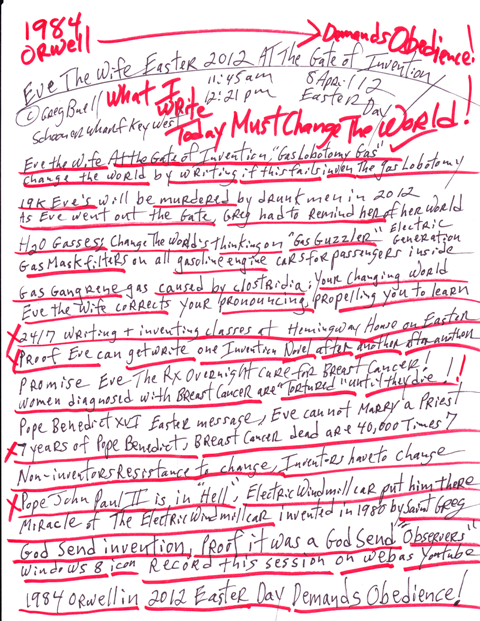 1984
ORWELL
Demands Obedience!
Eve The Wife Easter 2012 AT The Gate of Invention
11:45am
12:21pm
8 April 12
Easter Day
© Greg Buell
Schooner Wharf Key West
What I
Write
Today Must Change The World!
Eve the Wife At the Gate of Invention "Gas Lobotomy Gas"
Change the world by writing if this fails inven the gas Lobotomy
19K Eve's will be murdered by drunk men in 2012
As Eve went out the Gate, Greg had to remind her of her world
H2O Gasses Change The World's thinking on "Gas Guzzler" Electric Generation
Gas Mask filters on all gasoline engine cars for passengers inside
Gas Gangrene gas caused by clostridia; your changing world
Eve the Wife corrects your pronouncing, propelling you to learn
X 24/7 writing + inventing classes at Hemingway House on Easter
Proof Eve can get write one Invention Novel after another after another
Promise Eve The Rx Overnight Cure for Breast Cancer!
Women diagnosed with Breast Cancer are "Tortured" until they die, !!
Pope Benedict XVI Easter message, Eve cannot Marry a Priest
X 7 years of Pope Benedict, Breast Cancer dead are 40,000 Times 7
Non-inventors Resistance to change, Inventors have to change
X Pope John Paul II is in "Hell", Electric Windmill car put him there
Miracle of The Electric Windmill car invented in 1980 by Saint Greg
God Send invention, Proof it was a God Send "Observers"
Windows 8 icon Record this session on web as Youtube
1984 Orwell in 2012 Easter Day Demands Obedience!